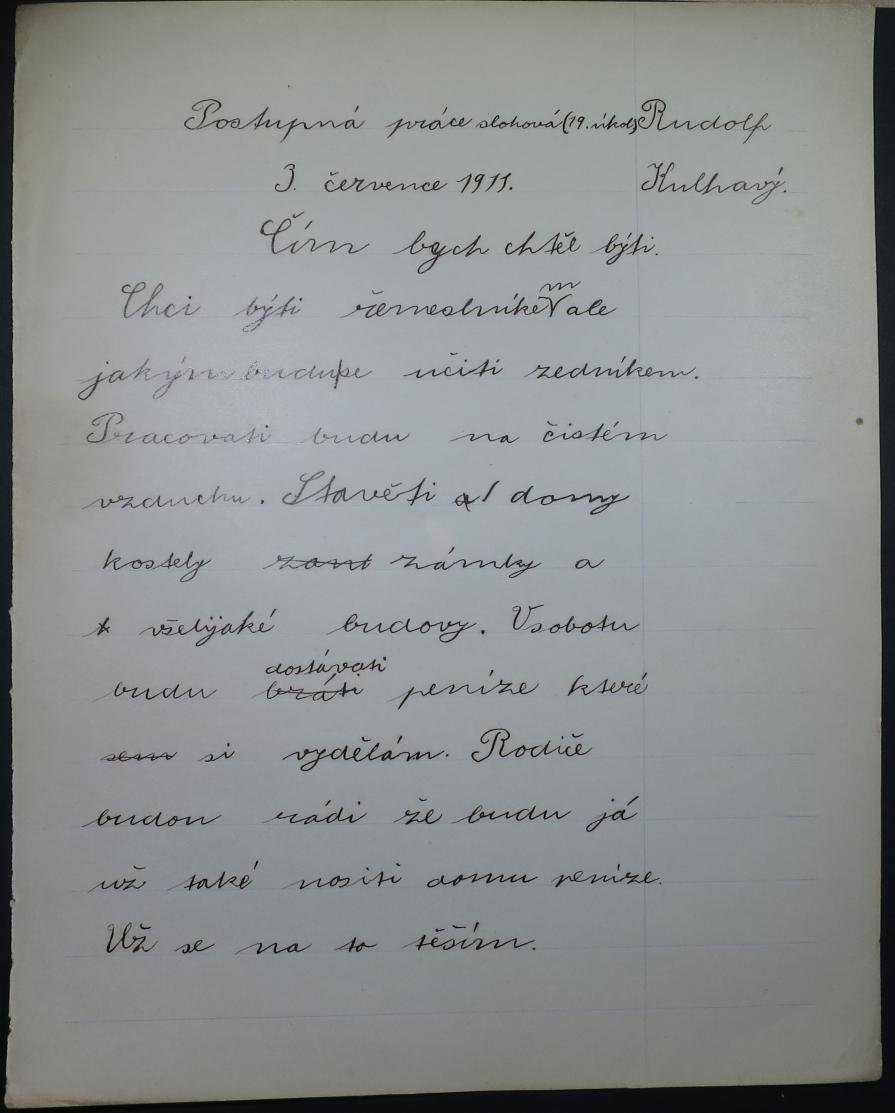 Postupná práce slohová (19. úkol) Rudolf
3. července 1911. Kulhavý.
Čím bych chtěl býti.
Chci býti řemeslníkem ale
jakým budu se učiti zedníkem.
Pracovati budu na čistém
vzduchu. Stavěti a domy
kostely zámky a
všelijaké budovy. Vsobotu
dostávati
budu bráti peníze které
sem si vydělám. Rodiče
budou rádi že budu já
už také nositi domu peníze.
Už se na to těším.